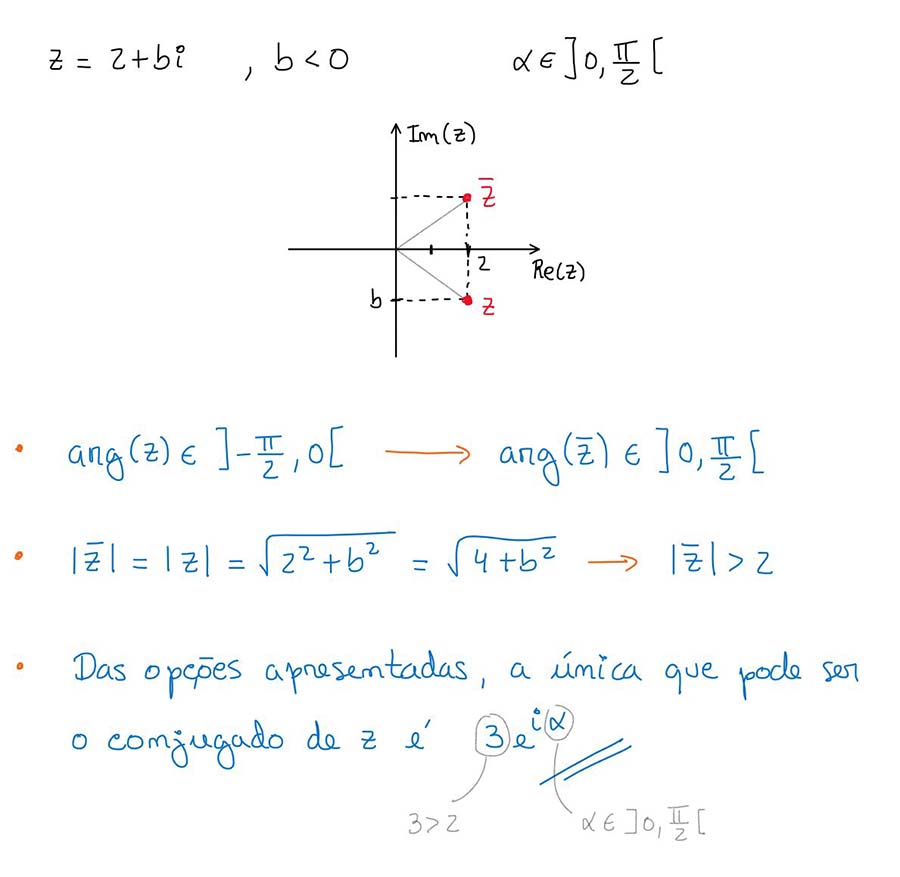 z = 2+bi , b < 0 α ∈ ]0, π/2 [
Im(z)
z̄
2
Re(z)
b
z
• arg(z) ∈ ]-π/2, 0[ → arg(z̄) ∈ ]0, π/2 [
• |z̄| = |z| = √(2² + b²) = √(4 + b²) → |z̄| > 2
• Das opções apresentadas, a única que pode ser
o conjugado de z é 3e^(iα)
3 > 2 α ∈ ]0, π/2 [